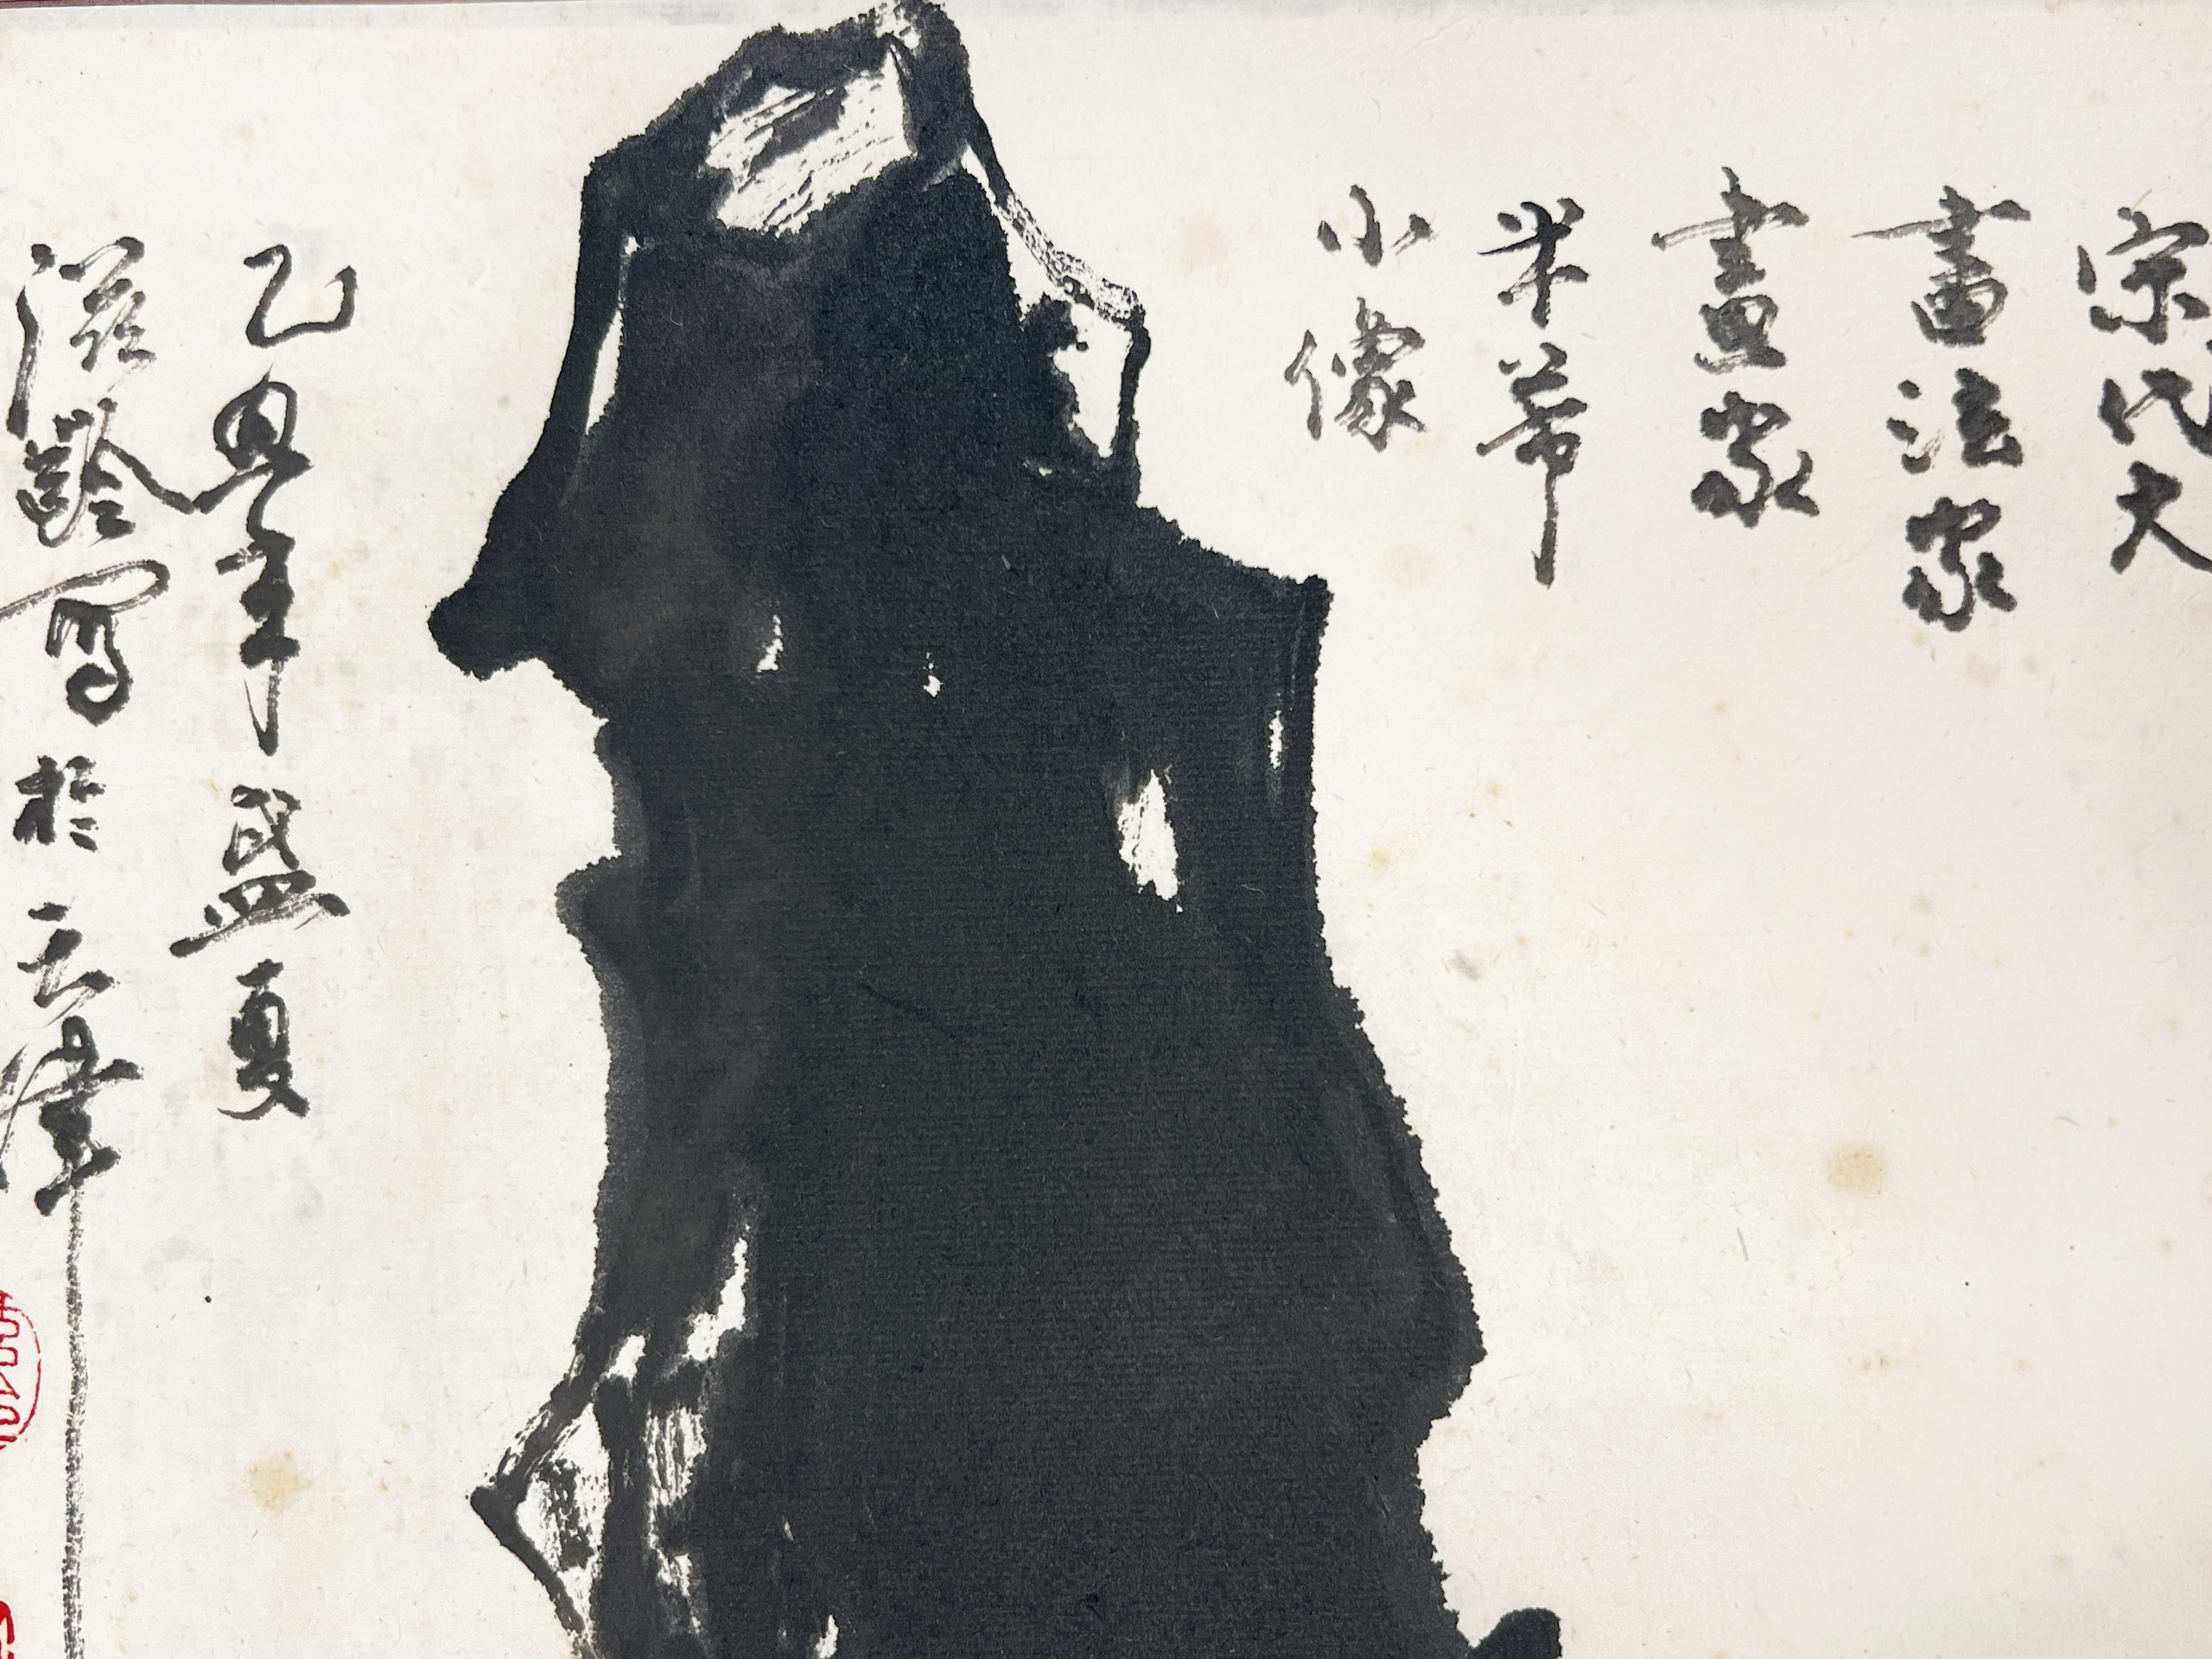 宋代大
書法家
畫家
米芾
小像
乙丑年盛夏
滋齡寫於天津